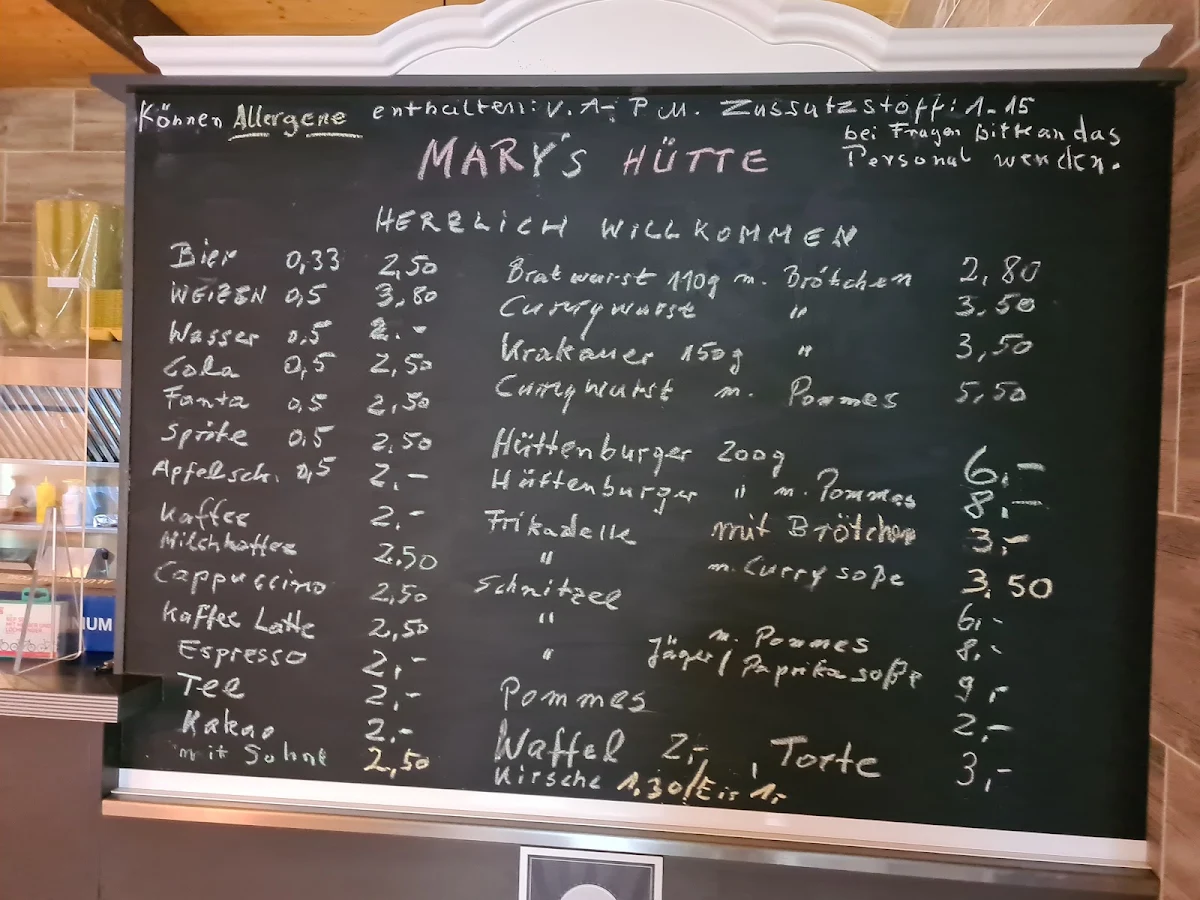 Können Allergene enthalten: v. A-P M. Zussutzstoff: 1-15
bei Fragen bitte an das
Personal wenden.
MARY'S HÜTTE
HERZLICH WILLKOMMEN
Bier 0,33 2,50
WEIZEN 0,5 3,80
Wasser 0,5 2.-
Cola 0,5 2,50
Fanta 0,5 2,50
Sprite 0,5 2,50
Apfelsch. 0,5 2,-
Kaffee 2,-
Milchkaffee 2,50
Cappuccino 2,50
Kaffee Latte 2,50
Espresso 2,-
Tee 2,-
Kakao 2.-
mit Sahne 2,50
Bratwurst 110g m. Brötchen 2,80
Currywurst " 3,50
Krakauer 150g " 3,50
Currywurst m. Pommes 5,50
Hüttenburger 200g 6,-
Hüttenburger " m. Pommes 8,-
Frikadelle mit Brötchen 3,-
" m. Curry soße 3,50
Schnitzel 6,-
" m. Pommes 8,-
" Jäger/Paprika soße 9,-
Pommes 2,-
Waffel 2,-, Torte 3,-
Kirsche 1,30/Eis 1,-
NUM